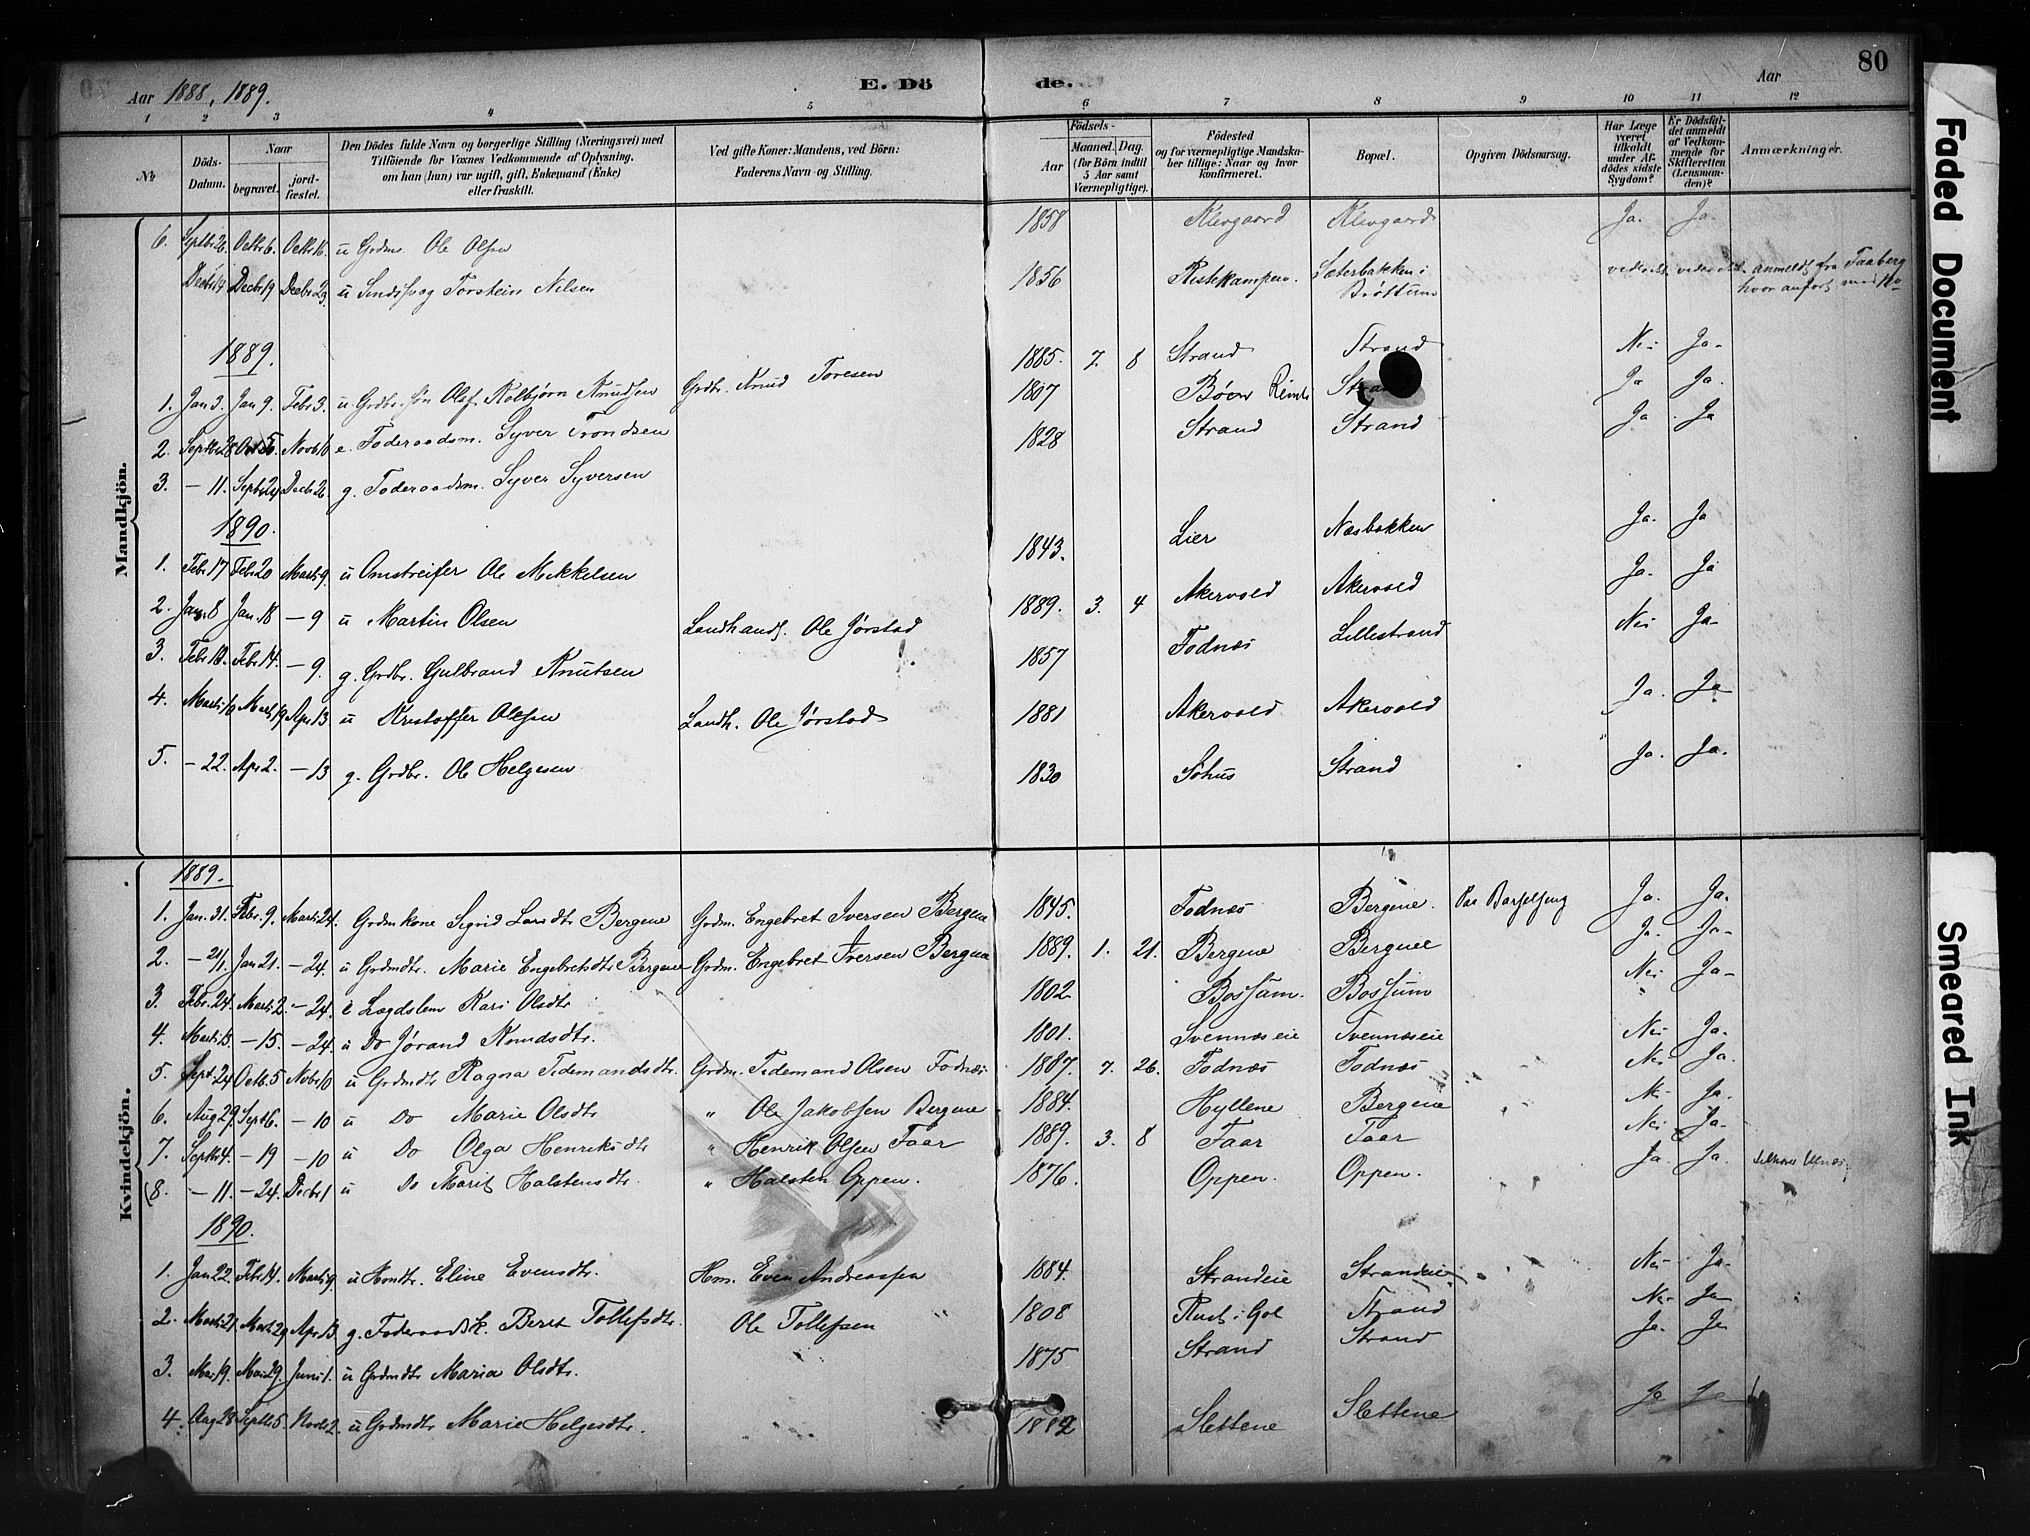 80
Aar 1888, 1889.
E. Dö de.
Aar
1 2 3 4 5 6 7 8 9 10 11 12
No
Döds-Datum.
Naar
begravet.
jord-fæstet.
Den Dödes fulde Navn og borgerlige Stilling (Næringsvei) med
Tilföiende for Voxnes Vedkommende af Oplysning,
om han (hun) var ugift, gift, Enkemand (Enke)
eller fraskilt.
Ved gifte Koner: Mandens, ved Börn:
Faderens Navn og Stilling.
Födsels-
Aar
Maaned. Dag.
(for Börn indtil
5 Aar samt
Værnepligtige).
Födested
og for værnepligtige Mandska-
ber tillige: Naar og hvor
konfirmeret.
Bopæl.
Opgiven Dödsaarsag.
Har Læge
været
tilkaldt
under Af-
dödes sidste
Sygdom?
Er Dödsfal-
det anmeldt
af Vedkom-
mende for
Skifteretten
(Lensman-
den)?
Anmærkninger.
Mandkjön.
6. Septbr 26. Octbr 6. Octbr 16. u Grdm. Ole Olsen 1858 Klevgaard Klevgaard Ja. Ja.
Decbr 14 Decbr 19 Decbr 29. u Torstein Nilsen 1856 Ristekampen. Sæterbakken i Brøttum anmeldt fra Faaberg
hvor anført med No
1889.
1. Jan 3. Jan 9. Febr 3. u. Grdbr. søn Olaf Kolbjørn Knudsen Grdbr. Knud Toresen 1885. 7. 8 Strand Strand Nei Ja.
2. Septbr 28 Novb 16 e. Foderaadsm. Syver Trondsen 1807 Bøen Ja Ja.
3. – 11. Septbr 24 Decbr 26. g. Foderaadsm. Syver Syversen 1828 Strand Strand Ja Ja
1890.
1. Febr 17 Febr 20 Marts 9. u Omstreifer Ole Mikkelsen 1843. Lier Næsbakken Ja. Ja
2. Jan. 8 Jan. 18 – 9 u Martin Olsen Landhandl. Ole Jørstad 1889. 3. 4 Akervold Akervold Ja. Ja
3. Febr Febr 14. – 9. g. Grdbr. Gulbrand Knutsen 1857 Fodnæs Lillestrand Nei Ja.
4. Marts 10 Marts 19 Apr 13 u Kristoffer Olsen Landh. Ole Jørstad 1881 Akervold Akervold Ja. Ja
5. – 22. Apr 2. – 13 g. Grdbr. Ole Helgesen 1830 Søhus Strand Ja. Ja.
Kvindekjön.
1889.
1. Jan. 31. Febr. 9. Marts 24. Grdmkone Sigrid Larsdtr Bergene Grdm. Engebret Iversen Bergene 1845. Fodnæs Bergene. Ja. Ja.
2. – 21/1. Jan 21. – 24. u Grdmdtr. Marie Engebretsdtr Bergene Grdm. Engebret Iversen Bergene 1889. 1. 21. Bergene Bergene Ja. Ja.
3. Febr. 24. Marts 2. – 24. e Lægdslem Kari Olsdtr 1802 Bossum. Bossum Nei Ja
4. Marts 13. – 15. – 24. u Do Jørand Knudsdtr. 1801. Svennæseie Svennæseie Nei Ja.
5. Sept. 24 Octb. 5 Novbr 10 u Grdmdtr Ragna Tidemandsdtr. Grdm. Tidemand Olsen Fodnæs 1887. 7. 26. Fodnæs Fodnæs Nei Ja.
6. Aug 29. Septb 6. – 10 u Do Marie Olsdtr " Ole Jakobsen Bergene 1884. Hyllene Bergene Nei Ja.
7. Septbr 4. – 19 – 10 u Do Olga Henriksdtr " Henrik Olsen Faar 1889. 3. 8 Faar Faar Nei Ja.
8. – 11. – 24. Decbr 1 u Do Marit Halstensdtr. " Halsten Oppen. 1876. Oppen. Oppen. Ja. Ja.
1890.
1. Jan 22. Febr 14. Marts 9. u Hmdtr. Eline Evensdtr. Hm. Even Andreassen 1884. Strandeie Strandeie Nei Ja.
2. Marts 21. Marts 29 Apr 13. g. Foderaadsk. Berit Tollefsdtr. Ole Tollefsen 1808 Rust i Gol Strand Nei Ja
3. Mai 19. Mai 29. Juni 1. u Grdmdtr Maria Olsdtr. 1875 Strand Strand Ja. Ja
4. Aug 28 Septbr 5. Novbr 2. u Grdmdtr Marie Helgesdtr. 1882 Slettene Slettene Ja Ja
Faded Document
Smeared Ink